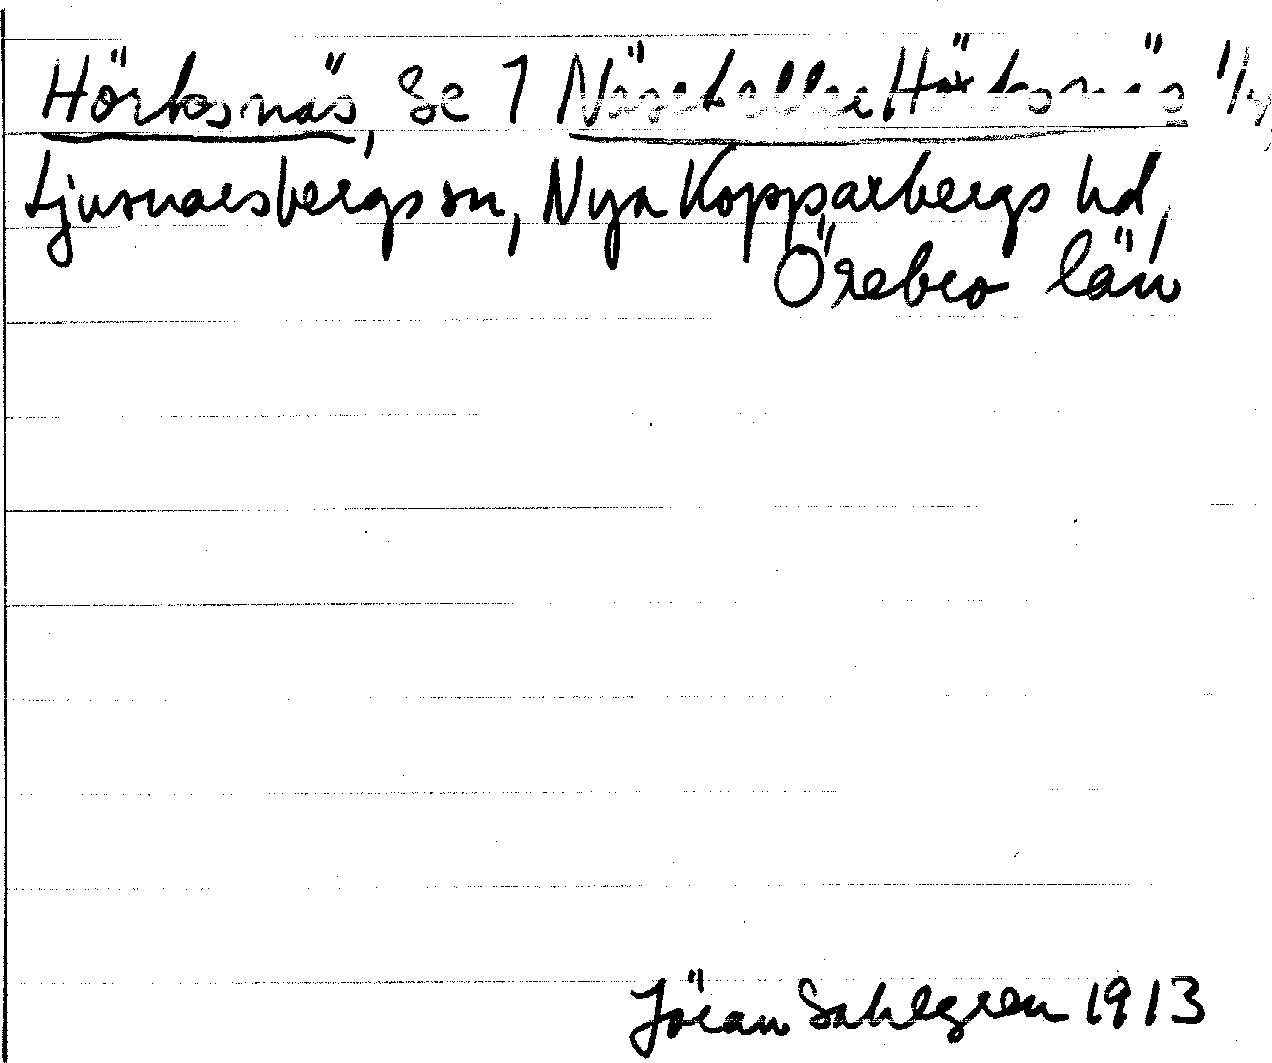 Hörksnäs, Se 1 Näset eller Hörksnäs 1/4,
Ljusnarsbergs sn, Nya Kopparbergs hd,
Örebro län
Jöran Sahlgren 1913